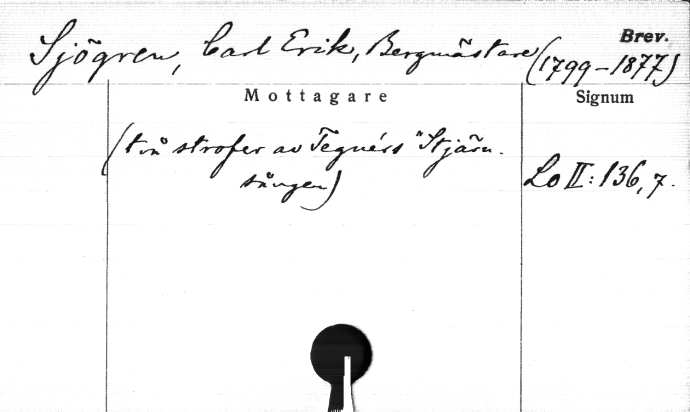 Brev.
Sjögren, Carl Erik, Bergmästare (1799-1877)
Mottagare Signum
(två strofer av Tegnérs "Stjärn-
sången) Lo II:136, 7.